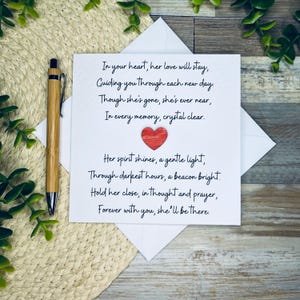 In your heart, her love will stay,
Guiding you through each new day.
Though she's gone, she's ever near,
In every memory, crystal clear.
Her spirit shines, a gentle light,
Through darkest hours, a beacon bright.
Hold her close, in thought and prayer,
Forever with you, she'll be there.